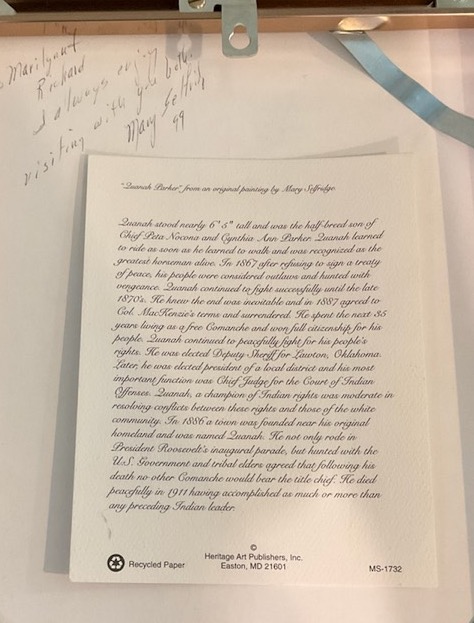 Marilyn &
Richard
I always enjoy
visiting with you both.
Mary Selfridge
99
"Quanah Parker" from an original painting by Mary Selfridge
Quanah stood nearly 6' 5" tall and was the half-breed son of
Chief Peta Nocona and Cynthia Ann Parker. Quanah learned
to ride as soon as he learned to walk and was recognized as the
greatest horseman alive. In 1867 after refusing to sign a treaty
of peace, his people were considered outlaws and hunted with
vengeance. Quanah continued to fight successfully until the late
1870's. He knew the end was inevitable and in 1887 agreed to
Col. MacKenzie's terms and surrendered. He spent the next 35
years living as a free Comanche and won full citizenship for his
people. Quanah continued to peacefully fight for his people's
rights. He was elected Deputy Sheriff for Lawton, Oklahoma.
Later, he was elected president of a local district and his most
important function was Chief Judge for the Court of Indian
Offenses. Quanah, a champion of Indian rights was moderate in
resolving conflicts between these rights and those of the white
community. In 1886 a town was founded near his original
homeland and was named Quanah. He not only rode in
President Roosevelt's inaugural parade, but hunted with the
U.S. Government and tribal elders agreed that following his
death no other Comanche would bear the title chief. He died
peacefully in 1911 having accomplished as much or more than
any preceding Indian leader.
Recycled Paper
©
Heritage Art Publishers, Inc.
Easton, MD 21601
MS-1732